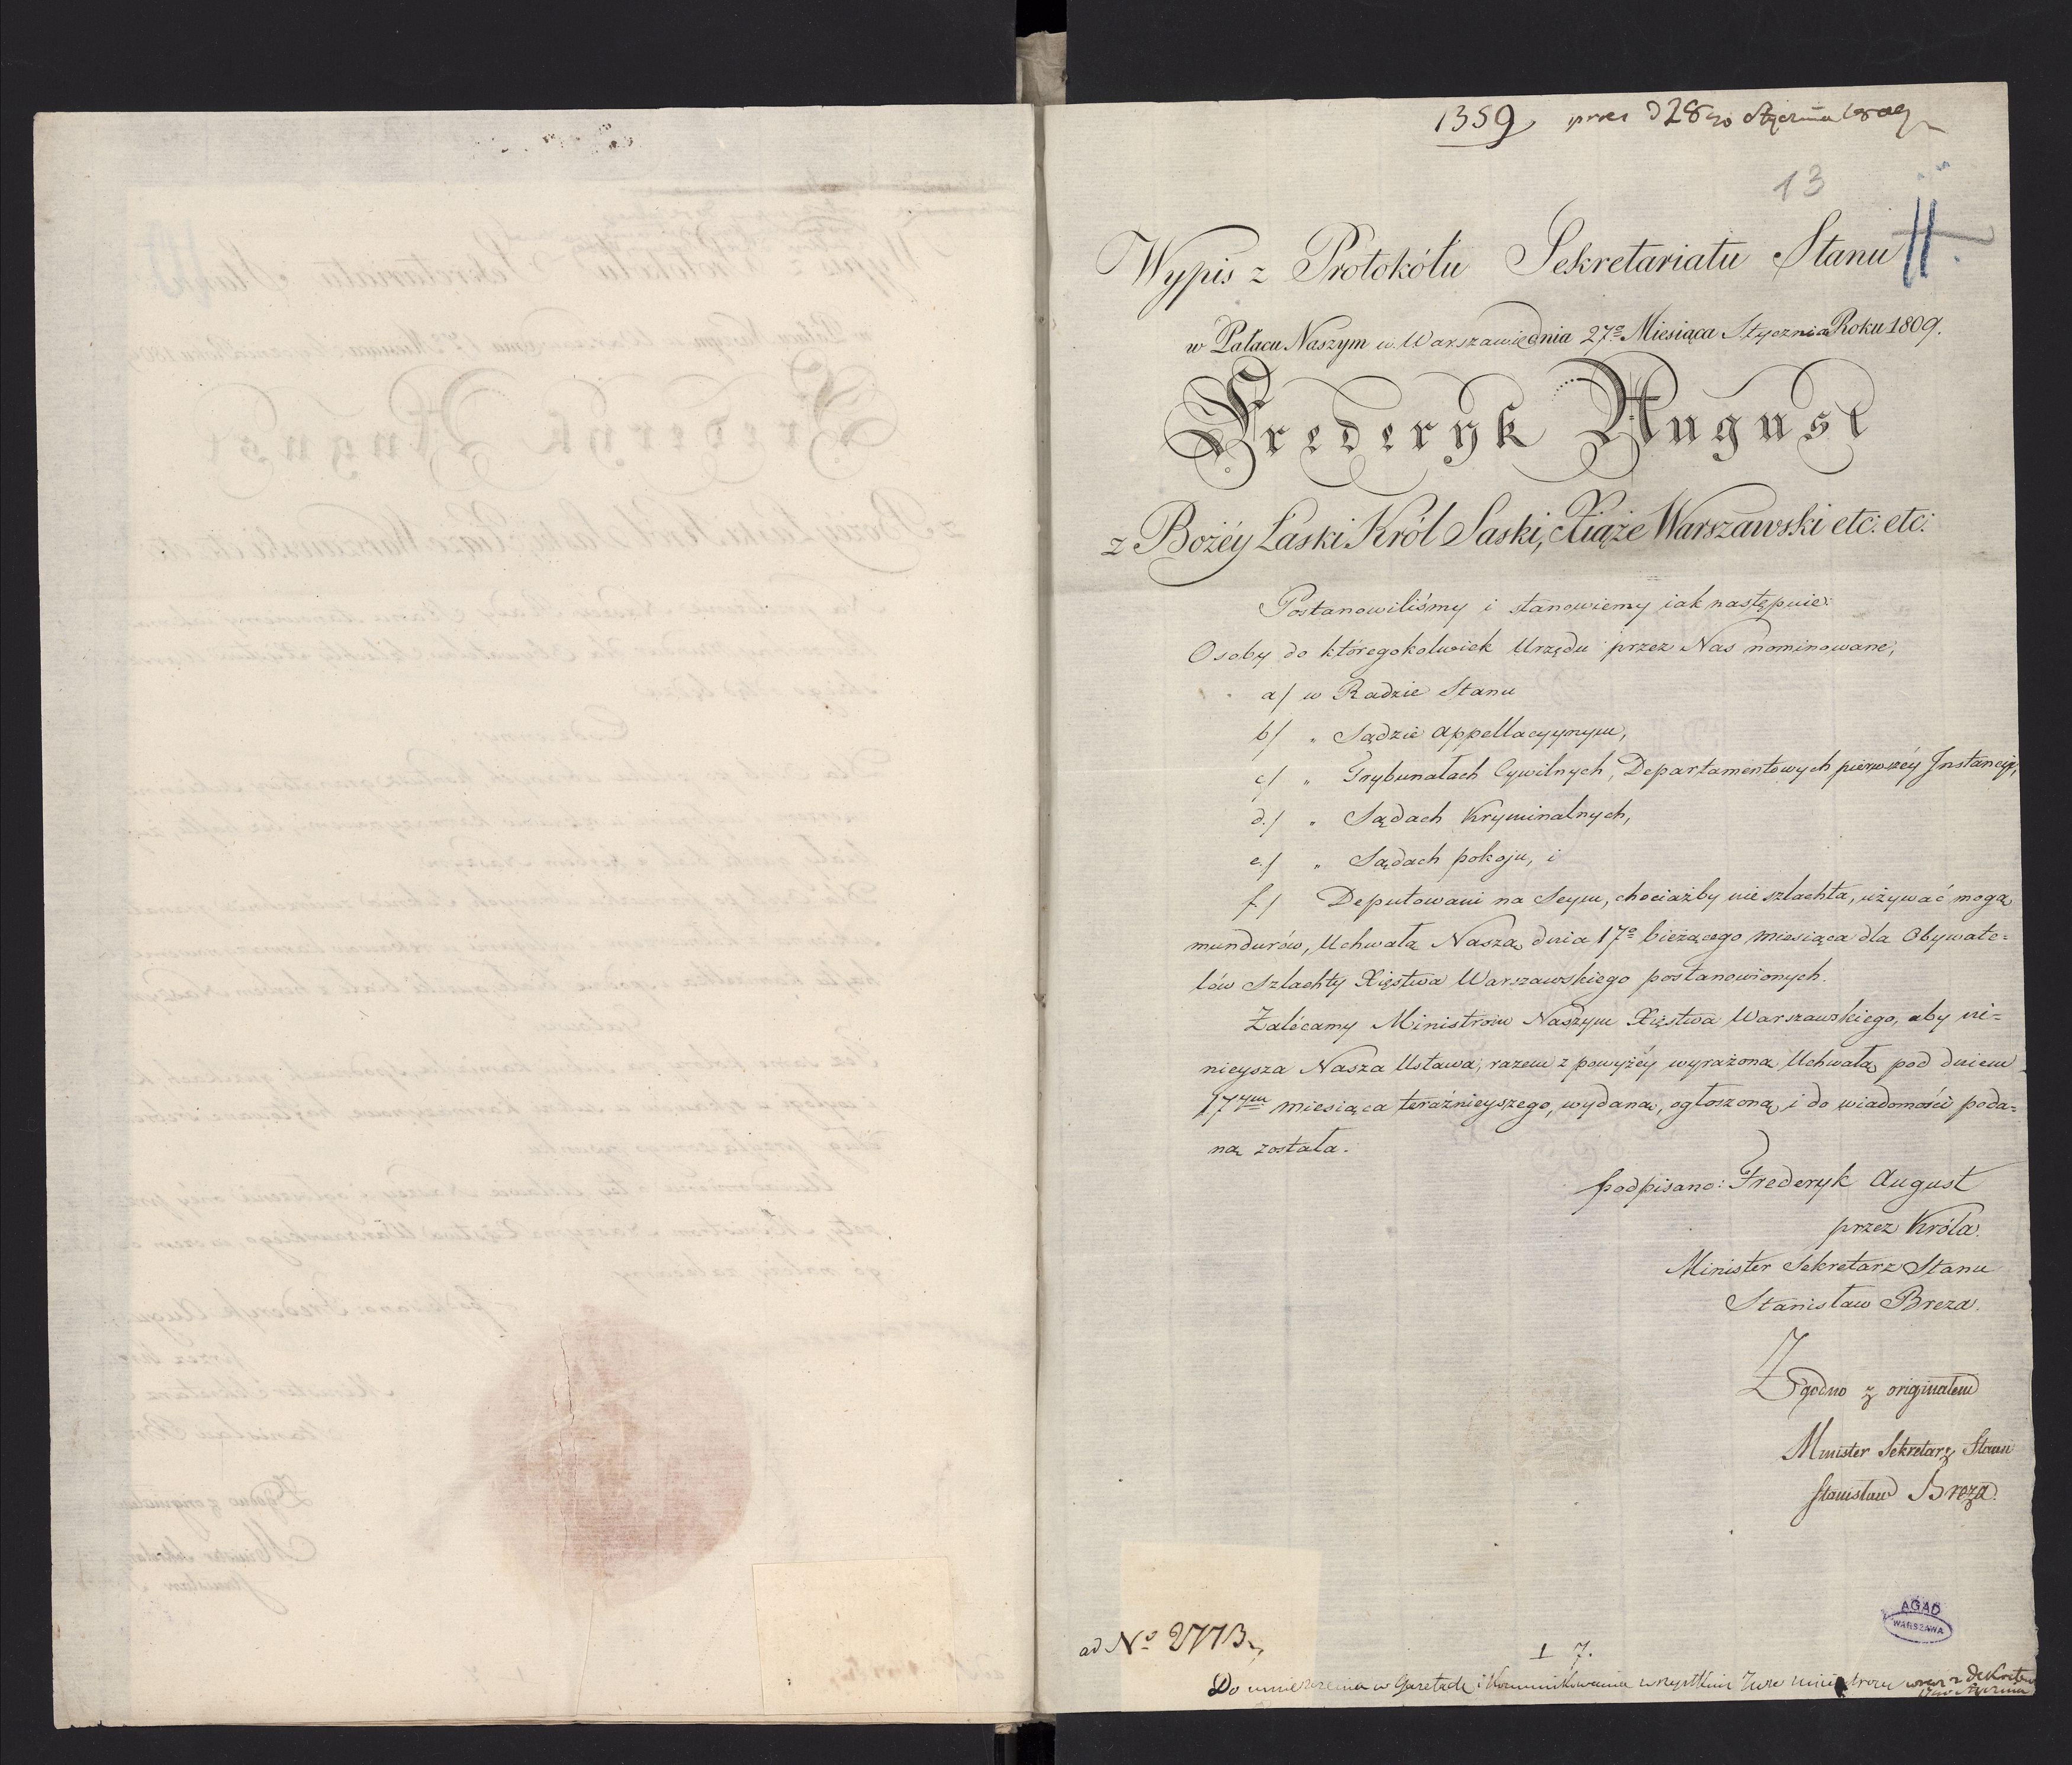 1359 pres d 28go Stycznia
13
Wypis z Protokółu Sekretariatu Stanu
w Pałacu Naszym w Warszawie dnia 27º Miesiąca Stycznia Roku 1809.
Frederyk August
z Bożéy Łaski Król Saski, Xiąże Warszawski etc: etc:
Postanowiliśmy i stanowiemy iak następuie:
Osoby do któregokolwiek Urzędu przez Nas nominowane,
a/ w Radzie Stanu
b/ „ Sądzie appellacyynym,
c/ „ Trybunałach Cywilnych, Departamentowych pierwszéy Instancyi,
d./ „ Sądach Kryminalnych,
e./ „ Sądach pokoju, i
f./ Deputowani na Seym, chociażby nie szlachta, używać mogą
mundurów, Uchwałą Naszą dnia 17º bieżącego miesiąca dla Obywate=
lów Szlachty Xięstwa Warszawskiego postanowionych.
Zalécamy Ministrom Naszym Xięstwa Warszawskiego, aby ni=
nieysza Nasza Ustawa, razem z powyżéy wyrażoną Uchwałą pod dniem
17ym miesiąca teraźnieyszego, wydaną, ogłoszoną i do wiadomości poda=
ną została.
podpisano: Frederyk August
przez Króla.
Minister Sekretarz Stanu
Stanisław Breza.
Zgodno z originałem
Minister Sekretarz Stanu
Stanisław Breza.
AGAD
WARSZAWA
ad Nº 2773
1 7.
Do umieszczenia w Gazetach i kommunikowania wszystkim ministrom wraz z Dekretem
17go Stycznia